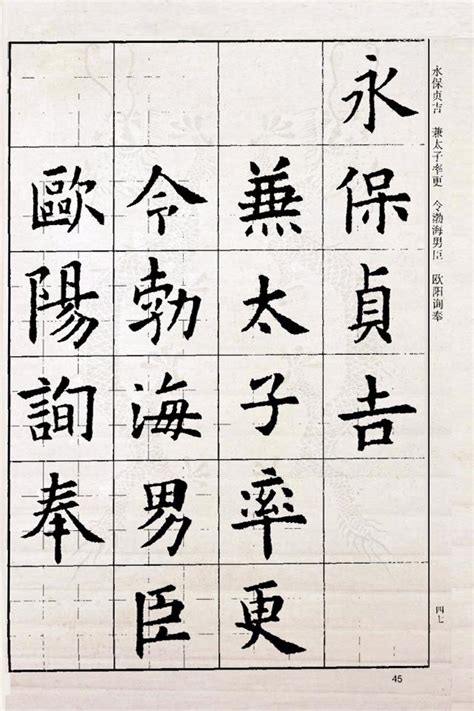 永保貞吉
兼太子率更
令勃海男臣
歐陽詢奉
永保贞吉 兼太子率更 令渤海男臣 欧阳询奉
四七
45